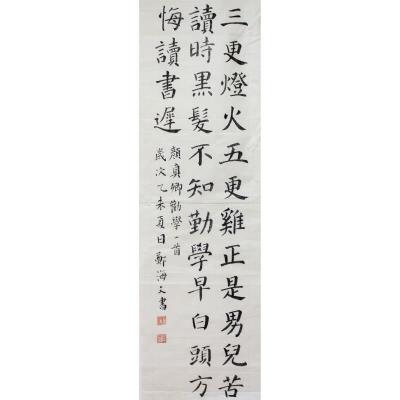 三更燈火五更雞正是男兒苦
讀時黑髮不知勤學早白頭方
悔讀書遲
顏真卿勸學一首
歲次乙未夏日鄭海文書